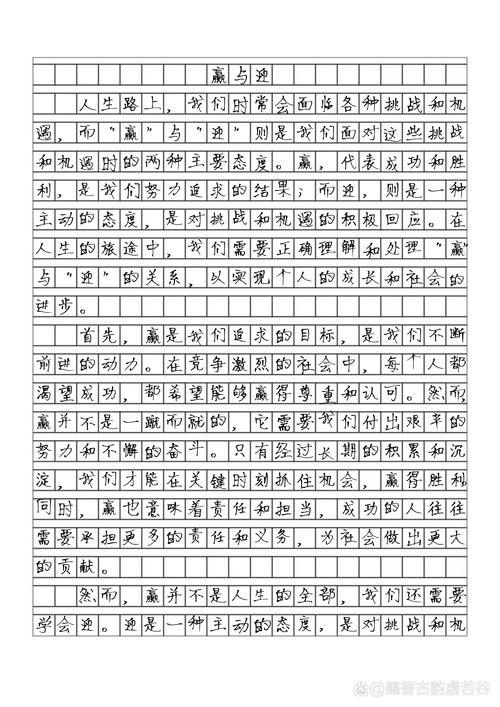 赢与迎
人生路上，我们时常会面临各种挑战和机
遇，而“赢”与“迎”则是我们面对这些挑战
和机遇时的两种主要态度。赢，代表成功和胜
利，是我们努力追求的结果；而迎，则是一种
主动的态度，是对挑战和机遇的积极回应。在
人生的旅途中，我们需要正确理解和处理“赢”
与“迎”的关系，以实现个人的成长和社会的
进步。
首先，赢是我们追求的目标，是我们不断
前进的动力。在竞争激烈的社会中，每个人都
渴望成功，都希望能够赢得尊重和认可。然而，
赢并不是一蹴而就的，它需要我们付出艰辛的
努力和不懈的奋斗。只有经过长期的积累和沉
淀，我们才能在关键时刻抓住机会，赢得胜利
同时，赢也意味着责任和担当，成功的人往往
需要承担更多的责任和义务，为社会做出更大
的贡献。
然而，赢并不是人生的全部，我们还需要
学会迎。迎是一种主动的态度，是对挑战和机
古韵虚若谷